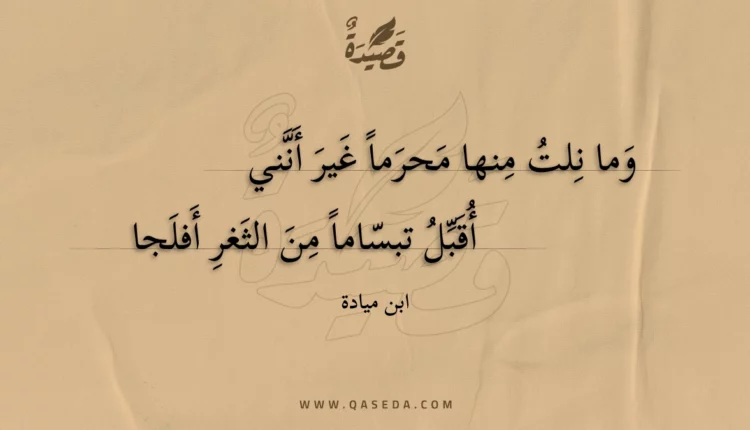 قَصِيْدَةٌ
وَما نِلتُ مِنها مَحرَماً غَيرَ أَنَّني
أُقَبِّلُ تبسّاماً مِنَ الثَغرِ أَفلَجا
ابن ميادة
WWW.QASEDA.COM